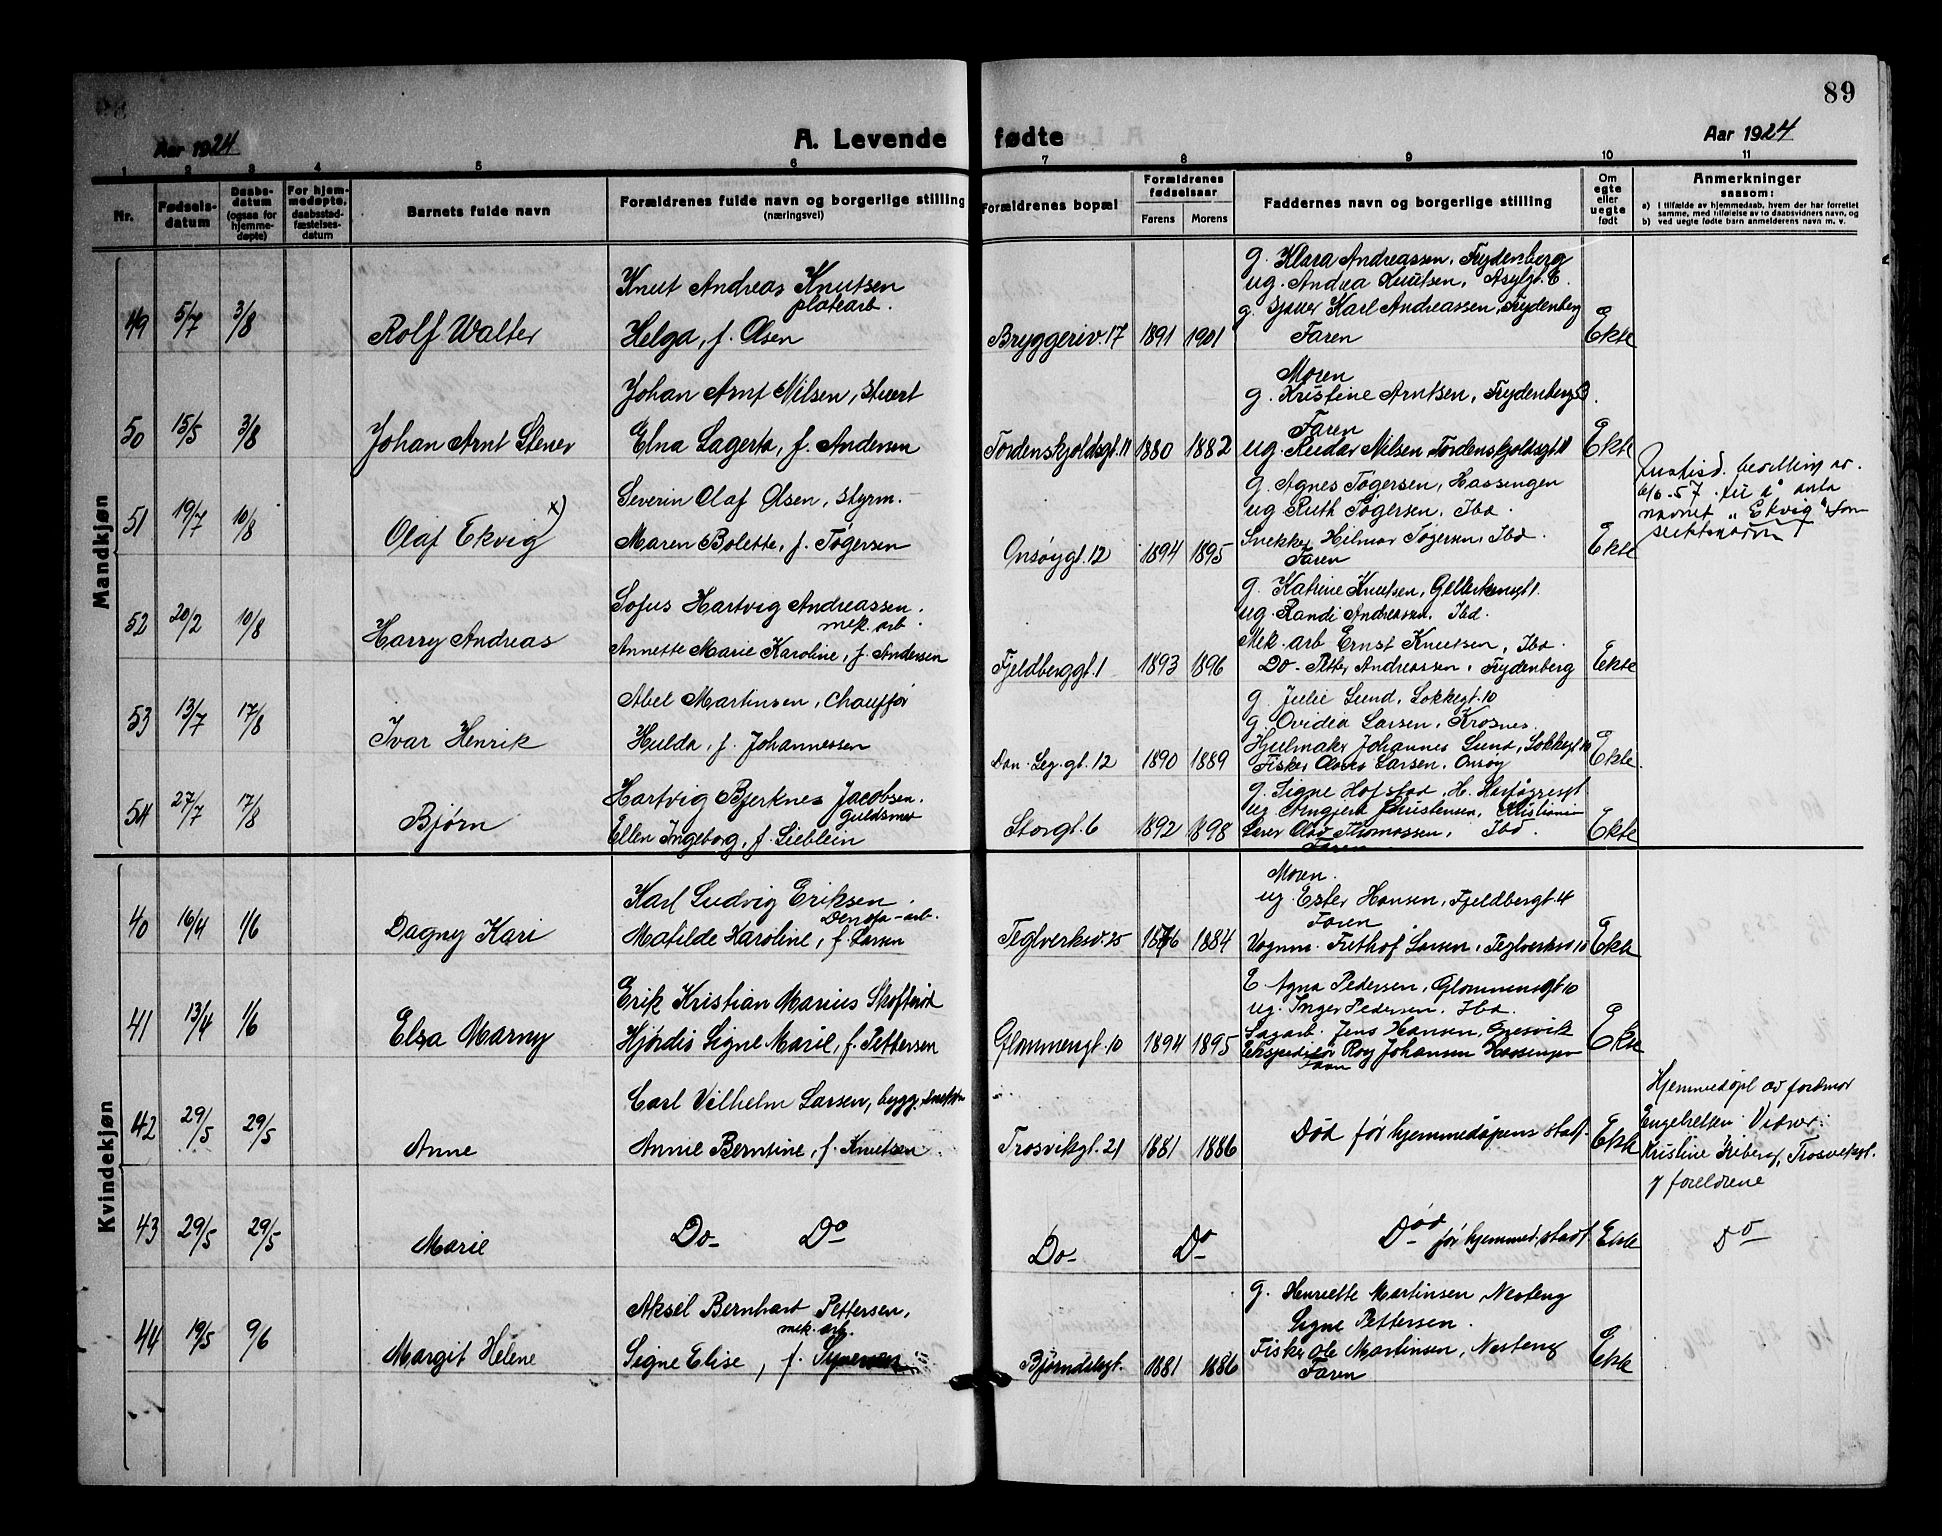 89
Aar 1924
A. Levende fødte
Aar 1924
1 2 3 4 5 6 7 8 9 10 11
Nr.
Fødsels-
datum
Daabs-
datum
(ogsaa for
hjemme-
døpte)
For hjem-
medøpte,
daabsstad-
fæstelses-
datum
Barnets fulde navn
Forældrenes fulde navn og borgerlige stilling
(næringsvei)
Forældrenes bopæl
Forældrenes
fødselsaar
Farens Morens
Faddernes navn og borgerlige stilling
Om
egte
eller
uegte
født
Anmerkninger
saasom:
a) I tilfælde av hjemmedaab, hvem der har forrettet
samme, med tilføielse av to daabsvidners navn, og
b) ved uegte fødte barn anmelderens navn m. v.
Mandkjøn
49 5/7 3/8
Rolf Walter
Knut Andreas Knutsen
platearb.
Helga, f. Olsen
Bryggeriv. 17 1891 1901
g. Klara Andreassen, Frydenberg
ug. Andrea Knutsen, Asylgt. 6.
g. Karl Andreassen, Frydenberg
Faren
Ekte
50 15/5 3/8
Johan Arnt Stener
Johan Arnt Nilsen, stuert
Elna Lagerta, f. Andersen
Tordenskjoldsgt. 11 1880 1882
Moren
g. Kristine Arntsen, Frydenberg
Faren
ug. Reidar Nilsen Tordenskjoldsgt 11
Ekte
51 19/7 10/8
Olaf Ekvig x)
Severin Olaf Olsen, styrm.
Maren Bolette, f. Tøgersen
Onsøygt. 12 1894 1895
g. Agnes Tøgersen, Hassingen
ug Ruth Tøgersen, Ibd.
Snekker Hilmar Tøgersen, Ibd.
Faren
Ekte
Justisd. bevilling av
57 til å anta
navnet "Ekvig" som
slektsnavn
52 20/2 10/8
Harry Andreas
Sofus Hartvig Andreassen.
mek. arb.
Annette Marie Karoline, f. Andersen
Fjeldberggt. 1 1893 1896
g. Katrine Knutsen,
ug. Randi Andreassen, Ibd.
Mek. arb Ernst Knutsen, Ibd.
Do. Petter Andreassen, Frydenberg
Ekte
53 13/7 17/8
Ivar Henrik
Abel Martinsen, Chauffør
Hulda, f. Johannessen
Dan. Leg. gt. 12 1890 1889
g. Julie Lund, Lokkegt. 10
g. Ovidia Larsen, Krosnes.
Hjulmaker Johannes Lund, Lokkegt 10
Fisker Larsen, Onsøy
Ekte.
54 27/7 17/8
Bjørn
Hartvig Bjerknes Jacobsen.
guldsmed
Ellen Ingeborg, f. Lieblein
Storgt. 6 1892 1898
g. Signe Hofstad,
ug Christensen, Kristiania
Olav Thomassen, Ibd.
Faren
Ekte
Kvindekjøn
40 16/4 1/6
Dagny Kari
Karl Ludvig Eriksen.
Denofa-arb.
Matilde Karoline, f. Larsen
Teglverksv. 25 1876 1884
Moren.
ug. Ester Hansen, Fjeldbergt. 4
Faren
Vognm. Frithof Larsen, Teglverksv 10
Ekte
41 13/4 1/6
Elsa Marny
Erik Kristian Marius Skofterød
Hjørdis Signe Marie, f. Pettersen
Glommengt. 10 1894 1895
E. Agna Pedersen, Glommensgt 10
ug. Inger Pedersen, Ibd.
Sagarb. Jens Hansen, Gresvik
Ekspeditør Roy Johansen Hassingen
Faren
Ekte
42 29/5 29/5
Anne
Carl Vilhelm Larsen, bygg.
Annie Berntine, f. Knutsen
Trosvikgt. 21 1881 1886
Død før hjemmedåpens stadf.
Ekte
Hjemmedøpt av jordmor
Engebretsen. Vidner:
Kristine Friberg, Trosvikgt.
7 foreldrene
43 29/5 29/5
Marie
Do Do
Do Do
Død
før hjemmed. stadf.
Ekte
Do
44 19/5 9/6
Margit Helene
Aksel Bernhard Pettersen,
mek. arb.
Signe Elise, f. Syversen
Bjørndalsgt. 1881 1886
g. Henriette Martinsen, Nesteng
Signe Pettersen.
Fisker Ole Martinsen, Nesteng
Faren
Ekte